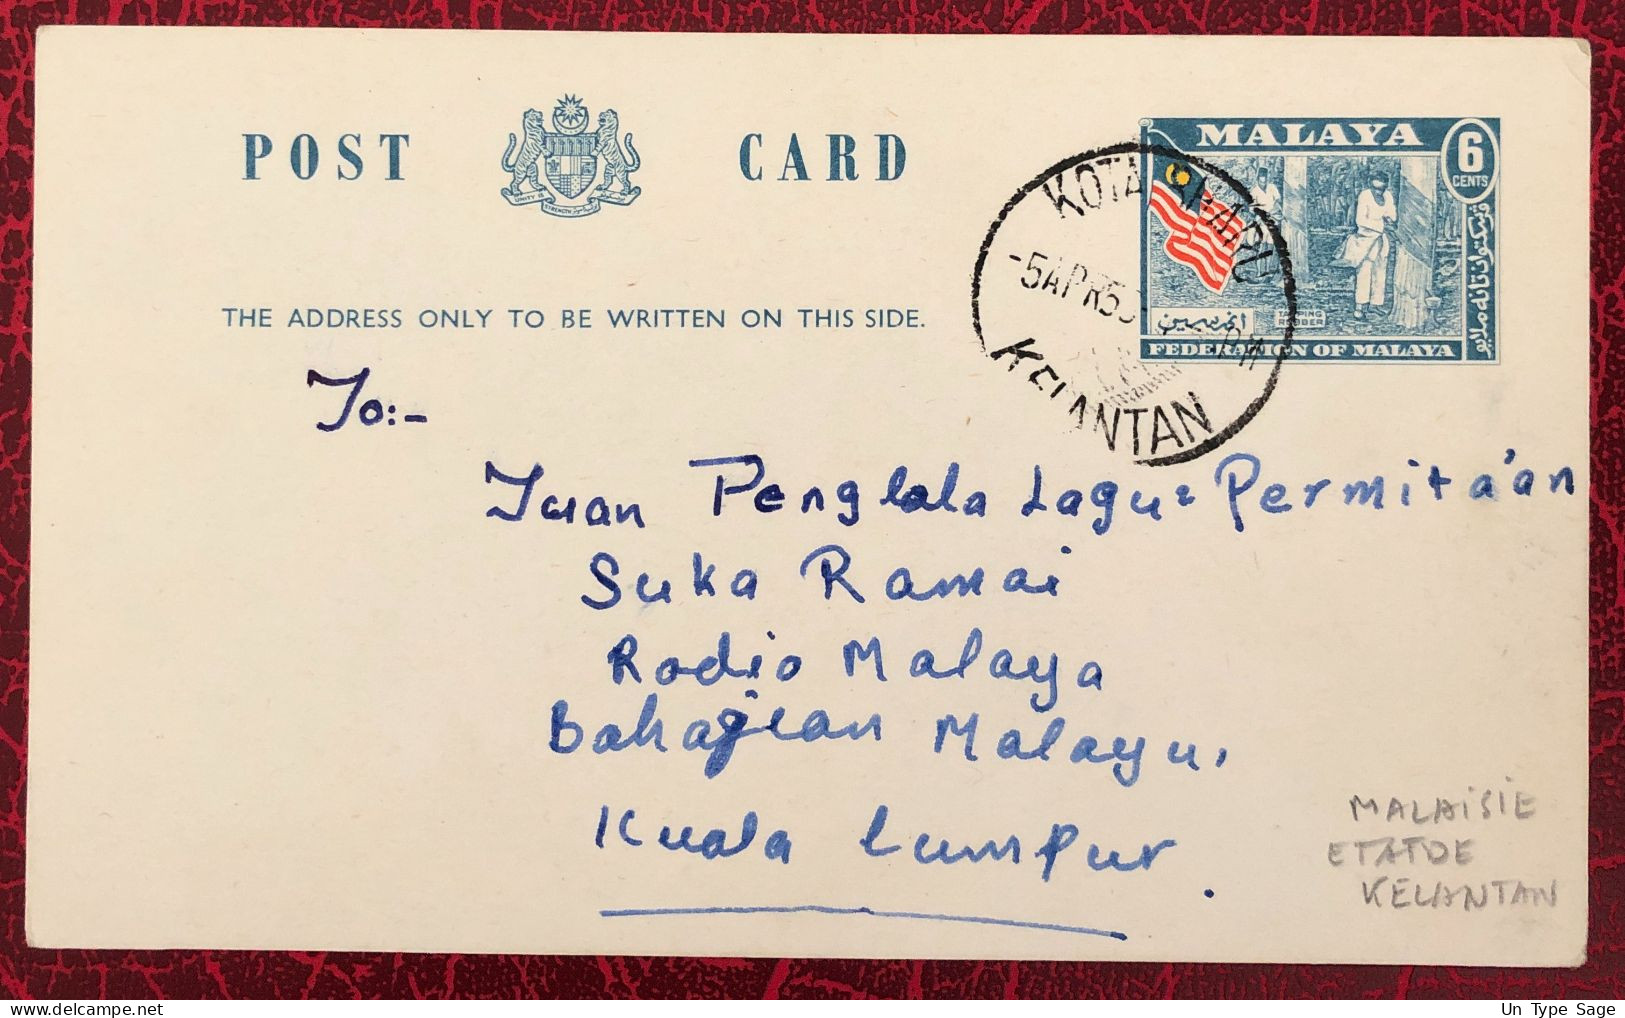 POST CARD
UNITY IS STRENGTH
THE ADDRESS ONLY TO BE WRITTEN ON THIS SIDE.
MALAYA
6
CENTS
TAPPING
RUBBER
FEDERATION OF MALAYA
KOTA BHARU
KELANTAN
To:-
Tuan Penglola Lagu² Permita'an
Suka Ramai
Radio Malaya
Bahagian Malayu.
Kuala Lumpur.
MALAISIE
ETATDE
KELANTAN
Un Type Sage